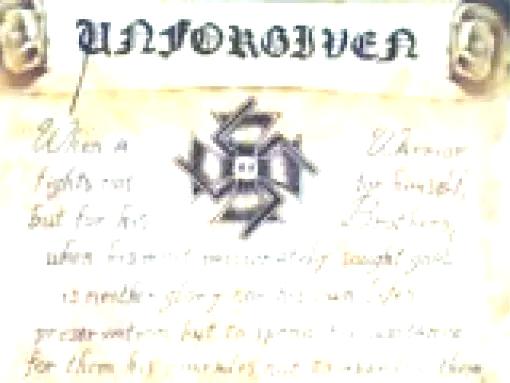 UNFORGIVEN
When a Warrior
fights not for himself,
but for his Brothers,
when his most passionately sought goal
is neither glory nor his own life's
preservation, but to spend his
for them his comrades